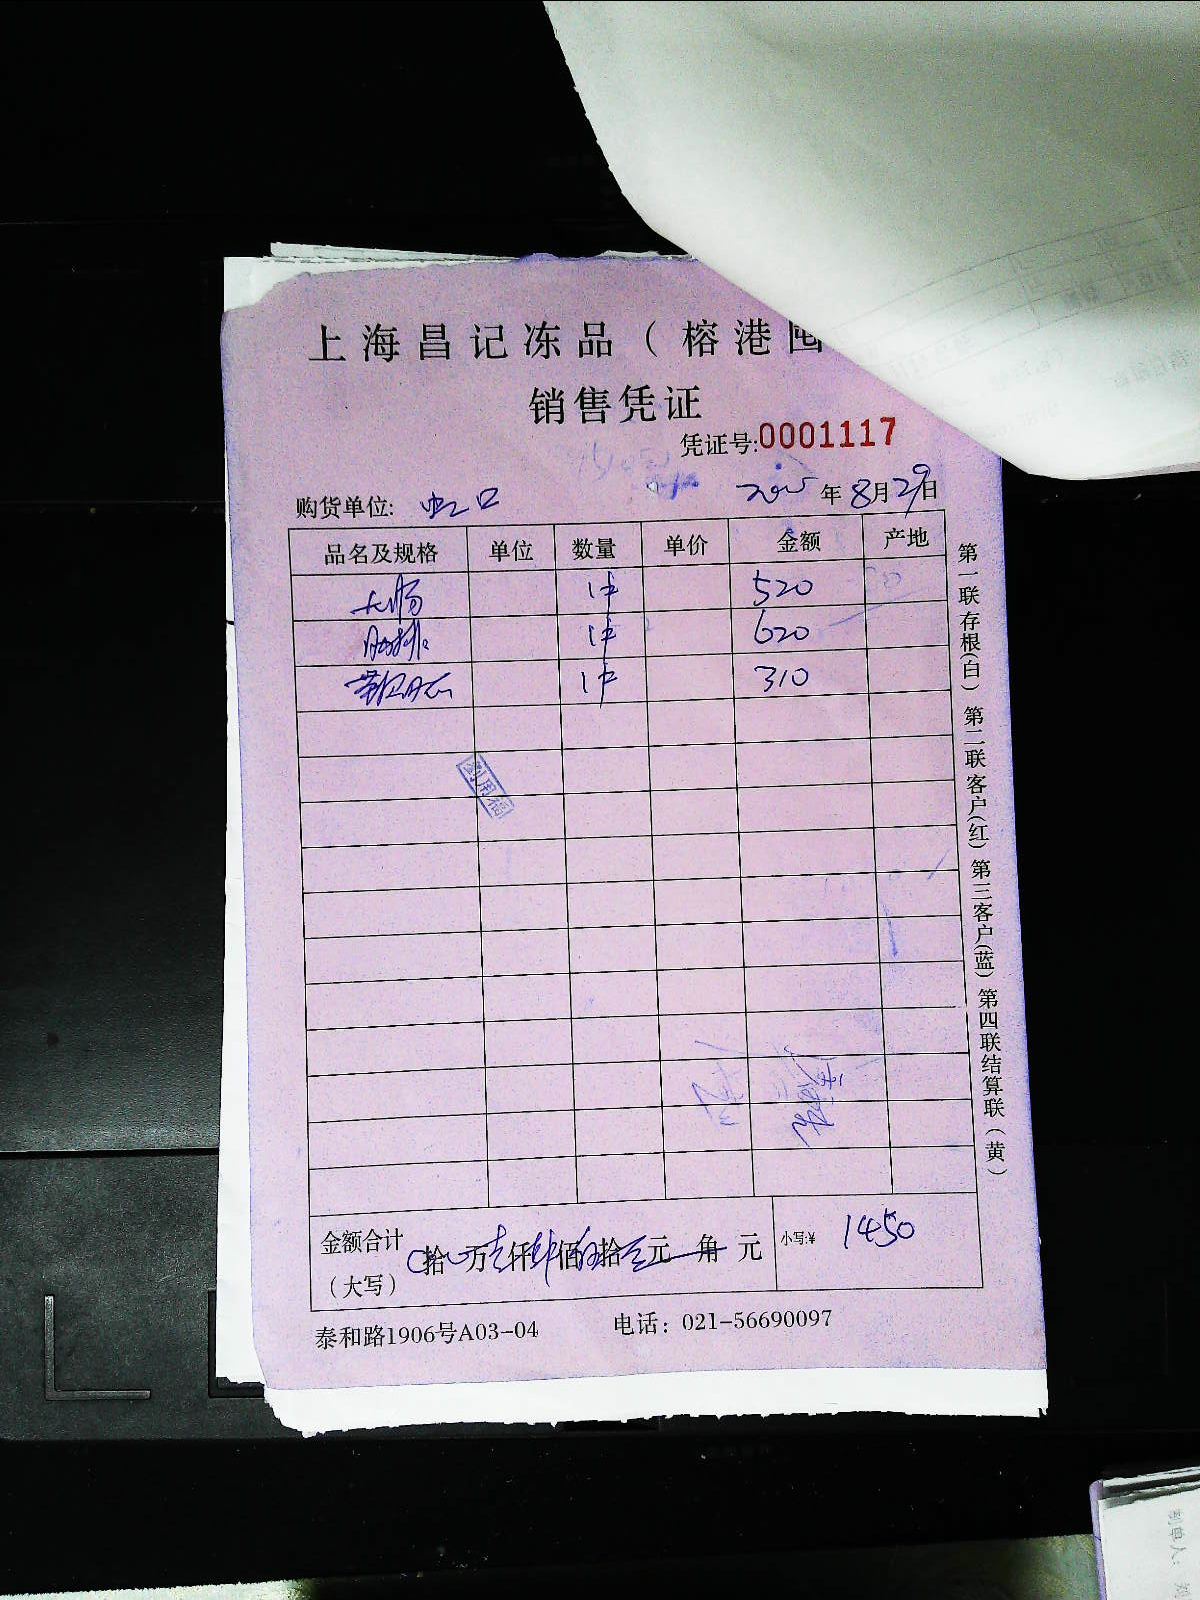 上海昌记冻品（榕港囤
销售凭证
凭证号:0001117
购货单位: 虹口 2025年8月29日
品名及规格 单位 数量 单价 金额 产地
大肠 1件 520
肋排 1件 620
1件 310
刘用福
金额合计（大写） 拾 万壹仟肆佰伍拾 元 角 元 小写:¥ 1450
泰和路1906号A03-04 电话：021-56690097
第一联存根(白) 第二联客户(红) 第三客户(蓝) 第四联结算联(黄)